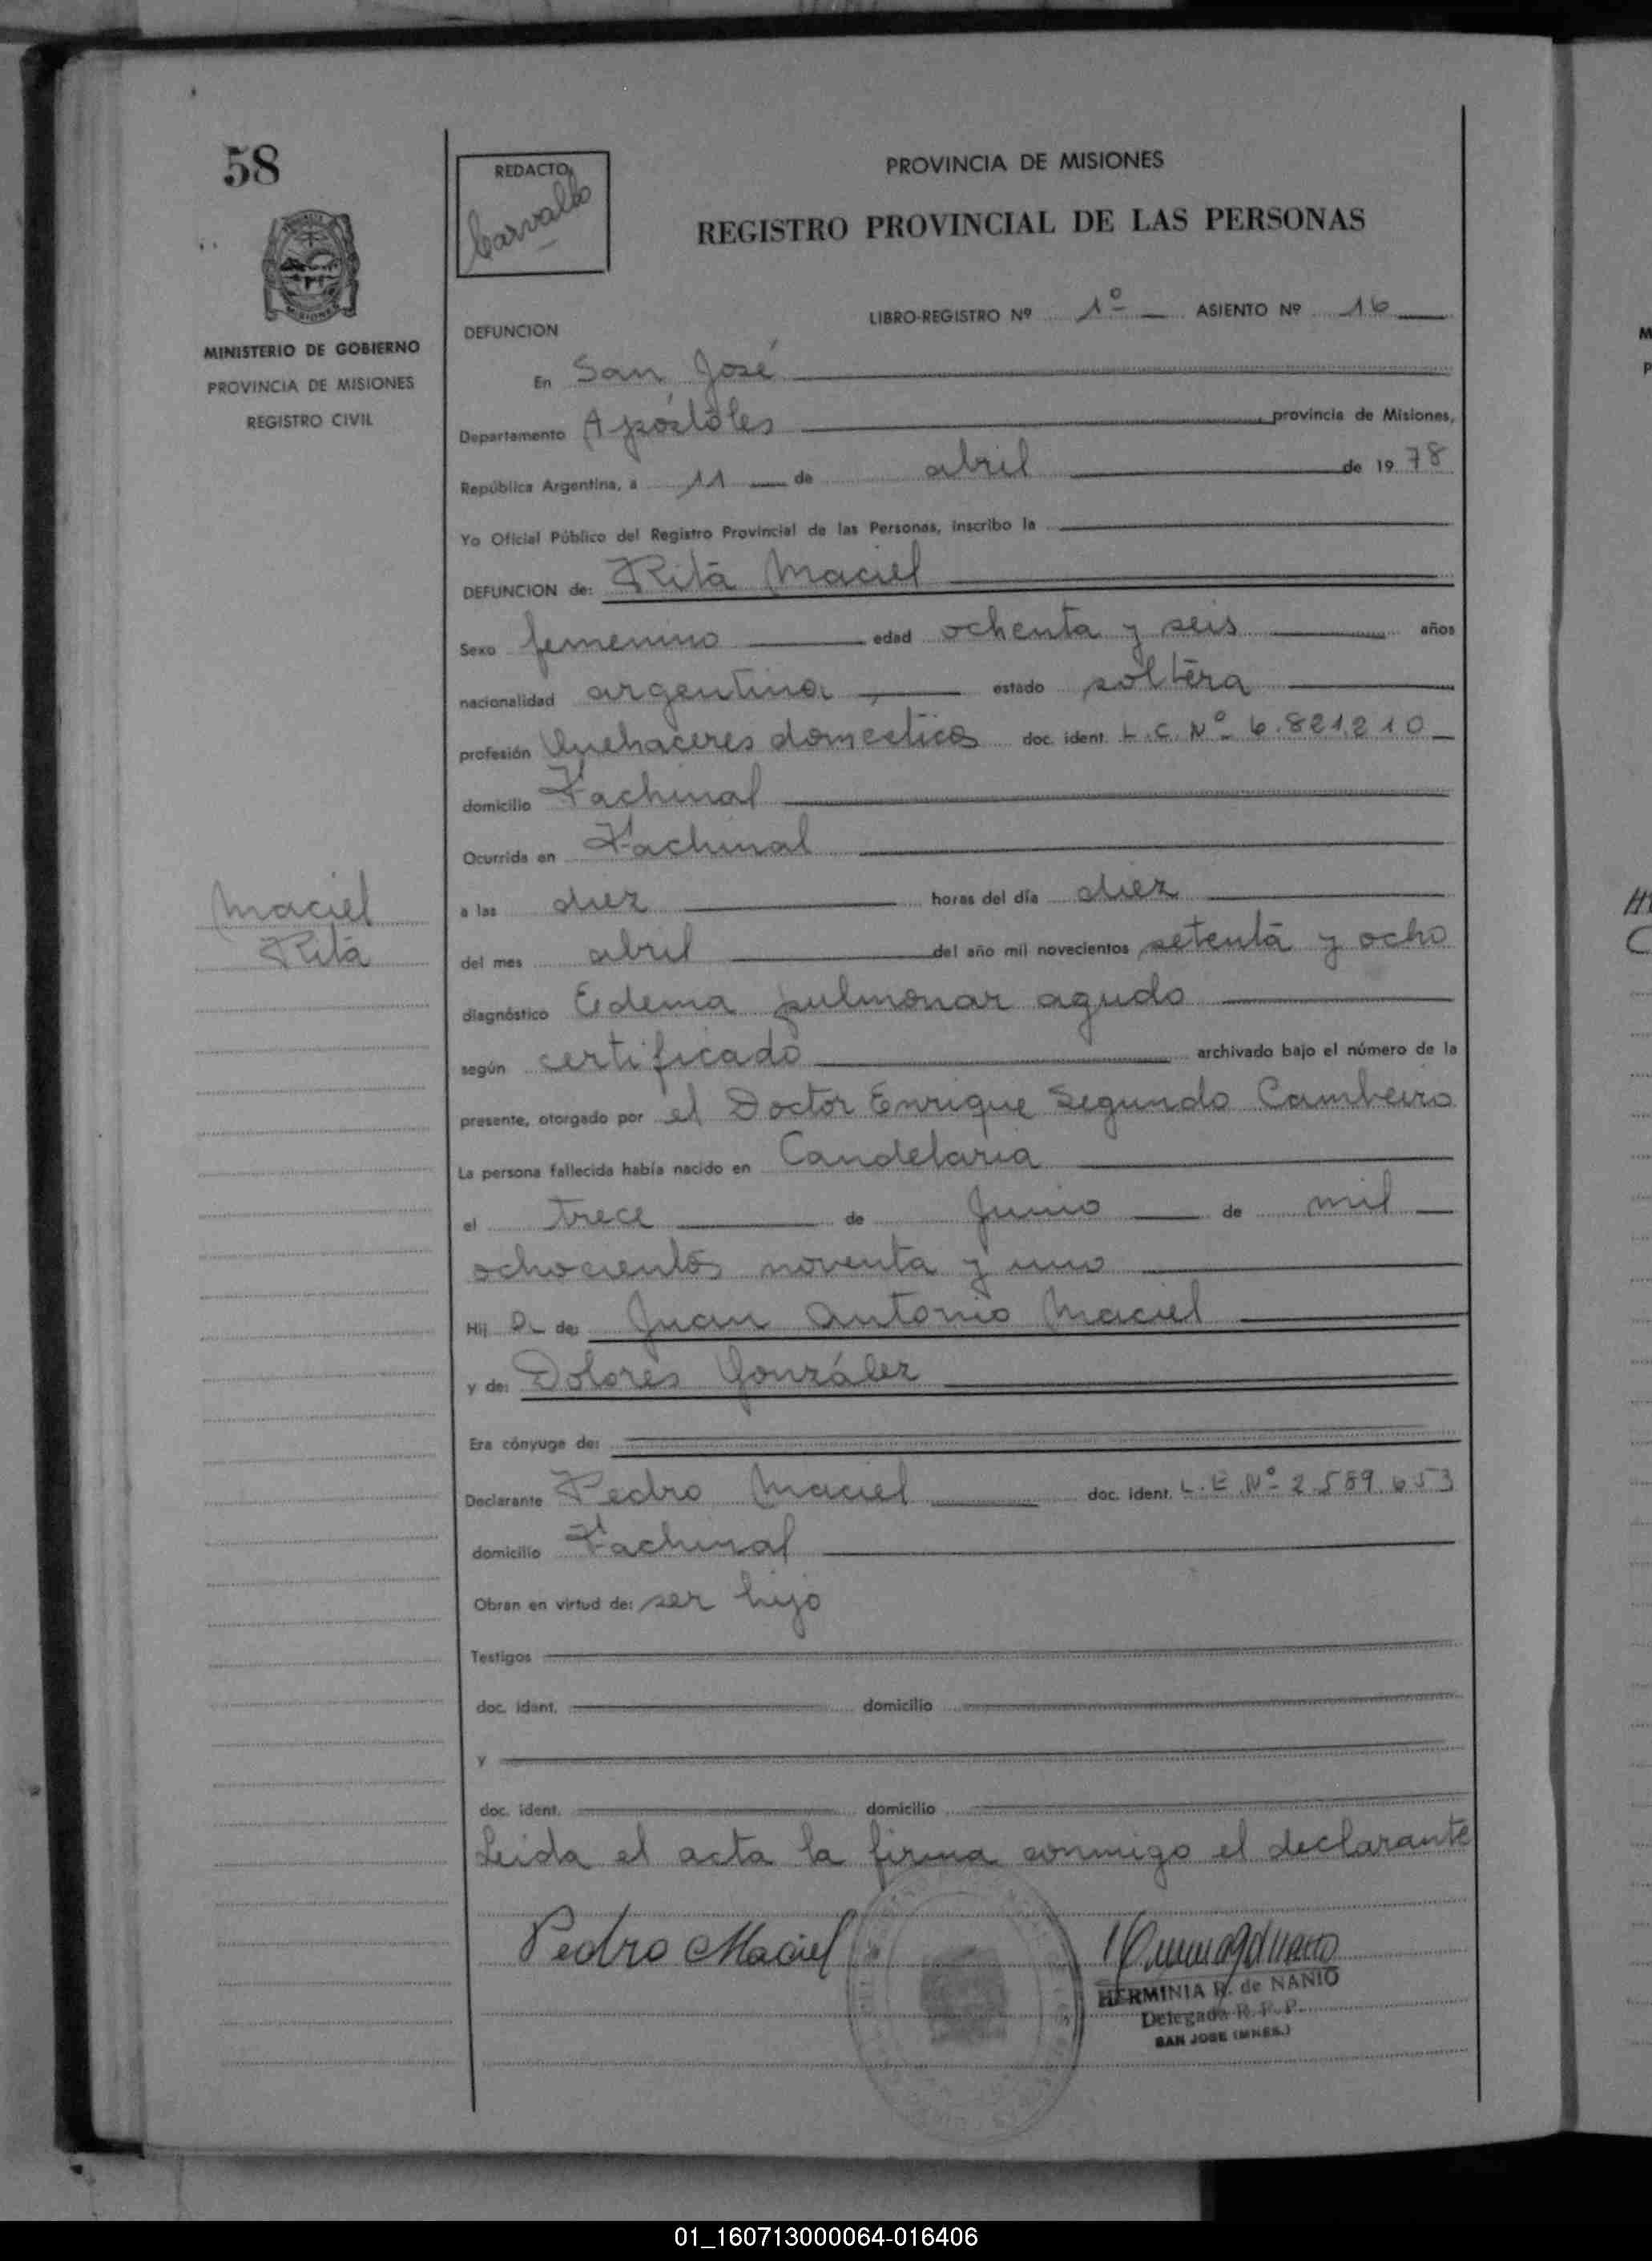 58
MINISTERIO DE GOBIERNO
PROVINCIA DE MISIONES
REGISTRO CIVIL
Maciel
Rita
REDACTO
Carvallo
PROVINCIA DE MISIONES
REGISTRO PROVINCIAL DE LAS PERSONAS
LIBRO-REGISTRO Nº 1º ASIENTO Nº 16
DEFUNCION
En San José
Departamento Apóstoles provincia de Misiones,
República Argentina, a 11 de abril de 1978
Yo Oficial Público del Registro Provincial de las Personas, inscribo la
DEFUNCION de: Rita Maciel
Sexo femenino edad ochenta y seis años
nacionalidad argentina estado soltera
profesión Quehaceres domésticos doc. ident. L.C. Nº 6.821.210
domicilio Fachinal
Ocurrida en Fachinal
a las diez horas del día diez
del mes abril del año mil novecientos setenta y ocho
diagnóstico Edema pulmonar agudo
según certificado archivado bajo el número de la
presente, otorgado por el Doctor Enrique Segundo Cambeiro
La persona fallecida había nacido en Candelaria
el trece de Junio de mil
ochocientos noventa y uno
Hij a de: Juan Antonio Maciel
y de: Dolores González
Era cónyuge de:
Declarante Pedro Maciel doc. ident. L.E. Nº 2.589.653
domicilio Fachinal
Obran en virtud de: ser hijo
Testigos
doc. ident. domicilio
y
doc. ident. domicilio
Leida el acta la firma conmigo el declarante
Pedro Maciel
HERMINIA R. de NANIO
Delegada R. P. P.
SAN JOSE (MNES.)
01_160713000064-016406